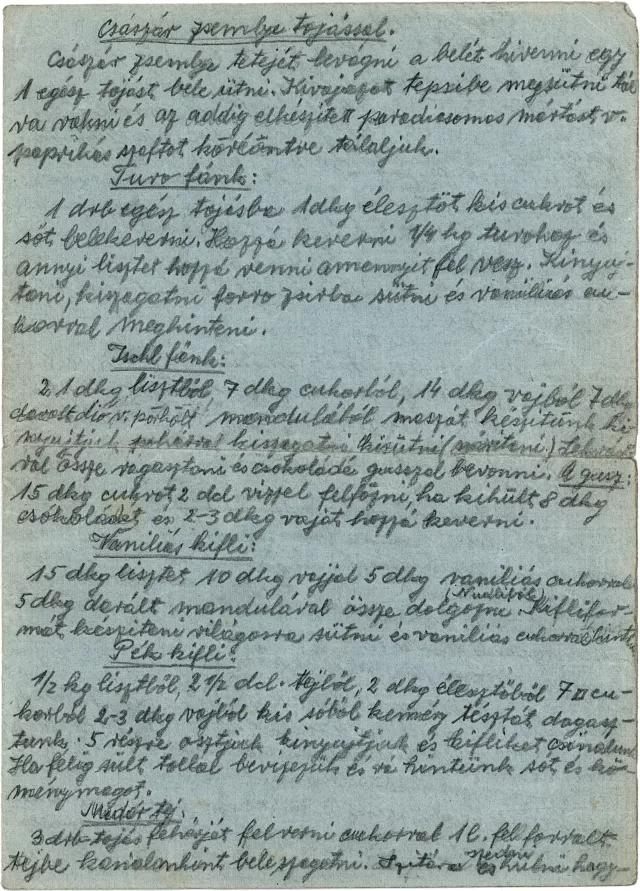 Császár zsemlye tojással.
Császár zsemlye tetejét levágni a belét kivenni egy
1 egész tojást bele ütni. Kivajazot tepsibe megsütni tál
va rakni és az addig elkészitett paradicsomos mártást v.
paprikás szaftot köréöntve tálaljuk.
Turo fánk:
1 drb egész tojásba 1 dkg élesztöt kis cukrot és
sót belekeverni. Hozzá keverni 1/4 kg turohoz és
annyi lisztet hozzá venni amennyit fel vesz. Kinyuj-
tani, kiszagatni forro zsirba sütni és vaniliás cu-
korral meghinteni.
Ischl fánk:
21 dkg lisztböl, 7 dkg cukorból, 14 dkg vajból 7 dkg
darált dio v. pörkölt mandulából maszát készitünk ki
nyujtjuk pohárral kiszagatni kisütni Lekvár
ral össze ragasztani és csokoládé gusszal bevonni. A gusz:
15 dkg cukrot 2 dcl vizzel felfözni, ha kihült 8 dkg
csokoládét és 2-3 dkg vaját hozzá keverni.
Vaniliás kifli:
15 dkg lisztet 10 dkg vajjal 5 dkg vaniliás cukorral
5 dkg darált mandulával össze dolgozni. (Nudliból) Kiflifor-
mát készíteni világosra sütni és vaniliás cukorral hinteni
Pék kifli:
1/2 kg lisztböl, 2 1/2 dcl. tejböl, 2 dkg élesztöböl 7 cu-
korból 2-3 dkg vajból kis sóból kemény tésztát dagasz-
tunk. 5 részre osztjuk kinyujtjuk és kifliket csinálunk
Ha félig sült tollal bevizezzük és rá hintünk sót és kö-
ménymagot.
Madár tej.
3 drb tojás fehérját felverni cukorral 1 l. fel forralt
tejbe kanalankint beleszagatni. Szitára szedni és hülni hagy-